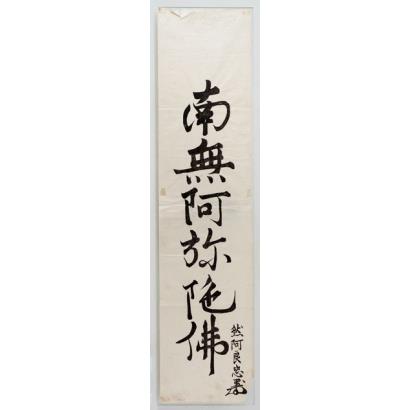 南無阿弥陀佛
然阿良忠